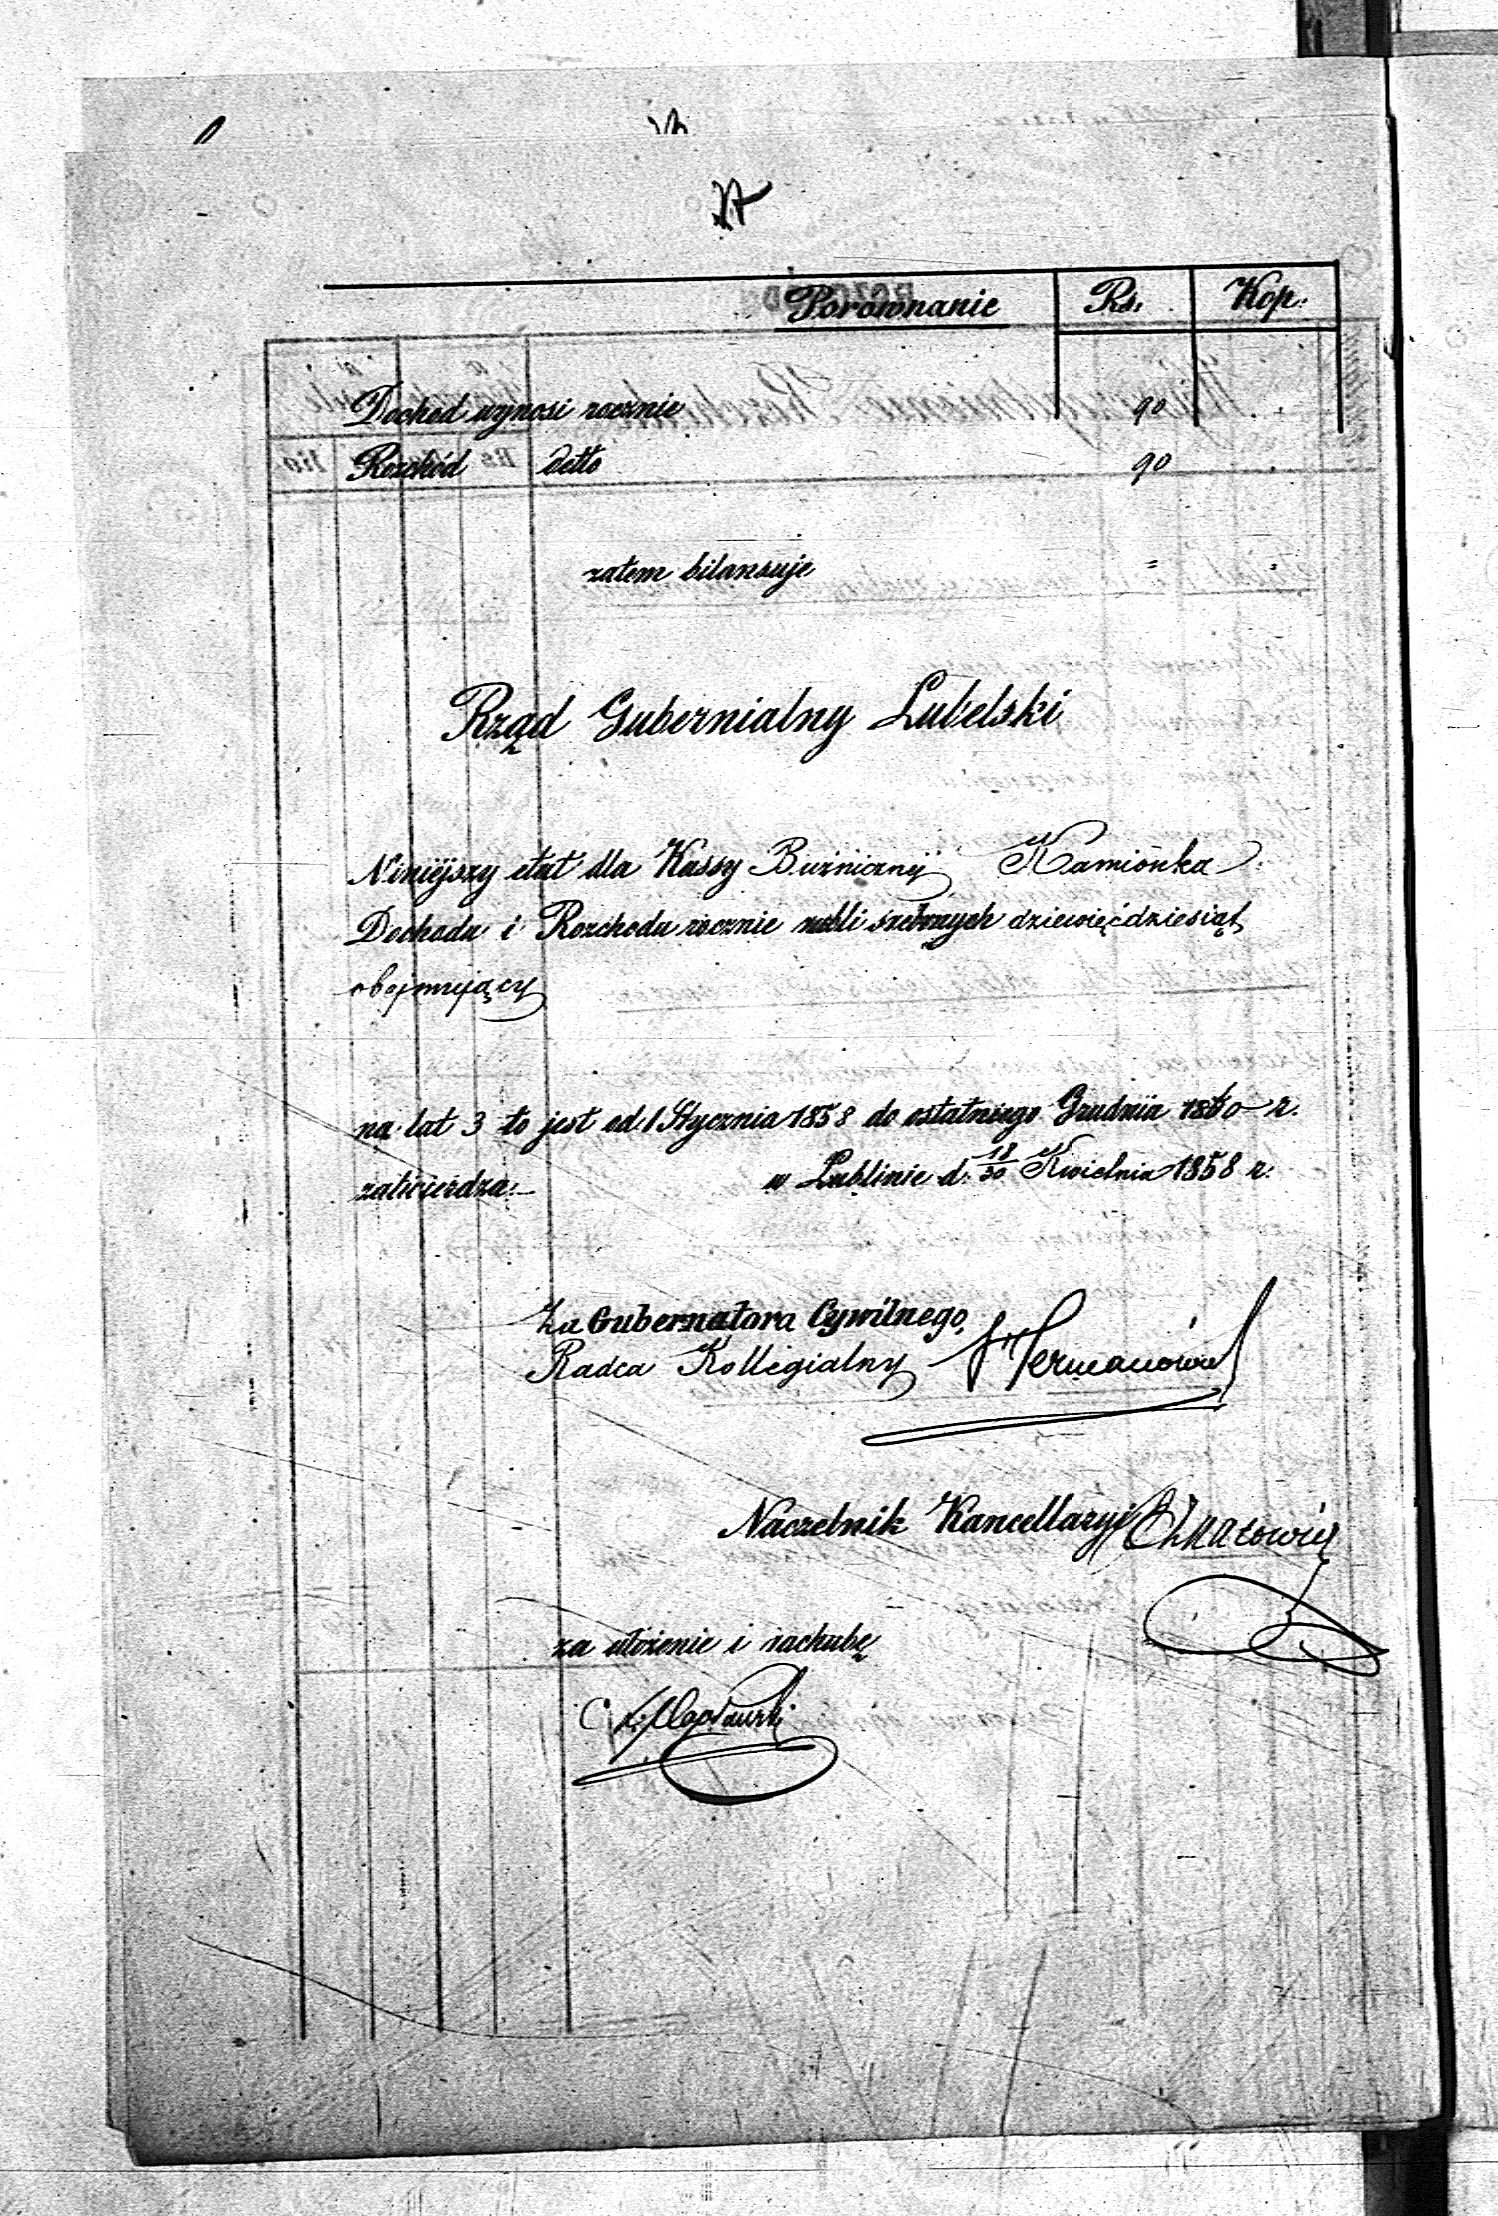 Porównanie Rs. Kop.
Dochod wynosi rocznie 90 .
Rozchód detto 90 .
zatem bilansuje = =
Rząd Gubernialny Lubelski
Niniejszy etat dla Kassy Bużniczny Kamionka
Dochodu i Rozchodu rocznie rubli srebrnych dziewięćdziesiąt
obejmujący
na lat 3 to jest od 1 Stycznia 1858 do ostatniego Grudnia 1860 r.
zatwierdza. w Lublinie d. 18/30 Kwietnia 1858 r.
Za Gubernatora Cywilnego,
Radca Kollegialny
Naczelnik Kancellaryi
za ułożenie i rachubę